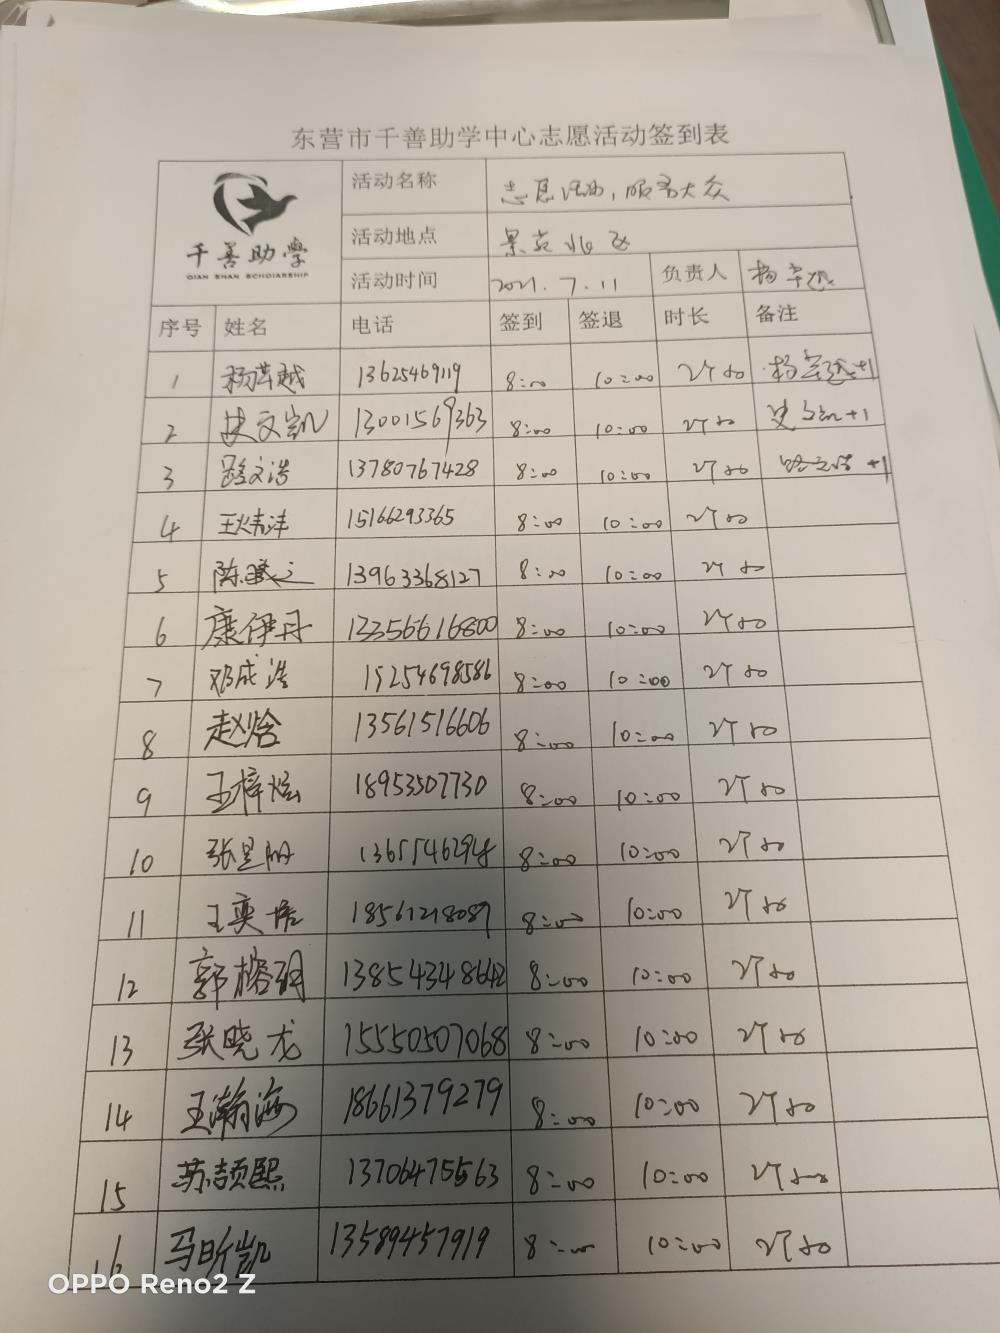 东营市千善助学中心志愿活动签到表
千善助学
QIAN SHAN SCHOIARSHIP
活动名称 志愿活动,服务大众
活动地点 景苑北区
活动时间 2021.7.11 负责人
序号 姓名 电话 签到 签退 时长 备注
1 13625469119 8:00 10:00 2个小时
2 史文凯 13001569363 8:00 10:00 2个小时 史文凯+1
3 路文浩 13780767428 8:00 10:00 2个小时 路文浩+1
4 15166293365 8:00 10:00 2个小时
5 13963368127 8:00 10:00 2个小时
6 康伊丹 13356616800 8:00 10:00 2个小时
7 邓成浩 15254698586 8:00 10:00 2个小时
8 赵焓 13561516606 8:00 10:00 2个小时
9 王梓炫 18953507730 8:00 10:00 2个小时
10 8:00 10:00 2个小时
11 18561218087 8:00 10:00 2个小时
12 郭榕玥 13854348642 8:00 10:00 2个小时
13 张晓龙 15550507068 8:00 10:00 2个小时
14 王瀚海 18661379279 8:00 10:00 2个小时
15 苏颉熙 13706475563 8:00 10:00 2个小时
16 马昕凯 13589457919 8:00 10:00 2个小时
OPPO Reno2 Z